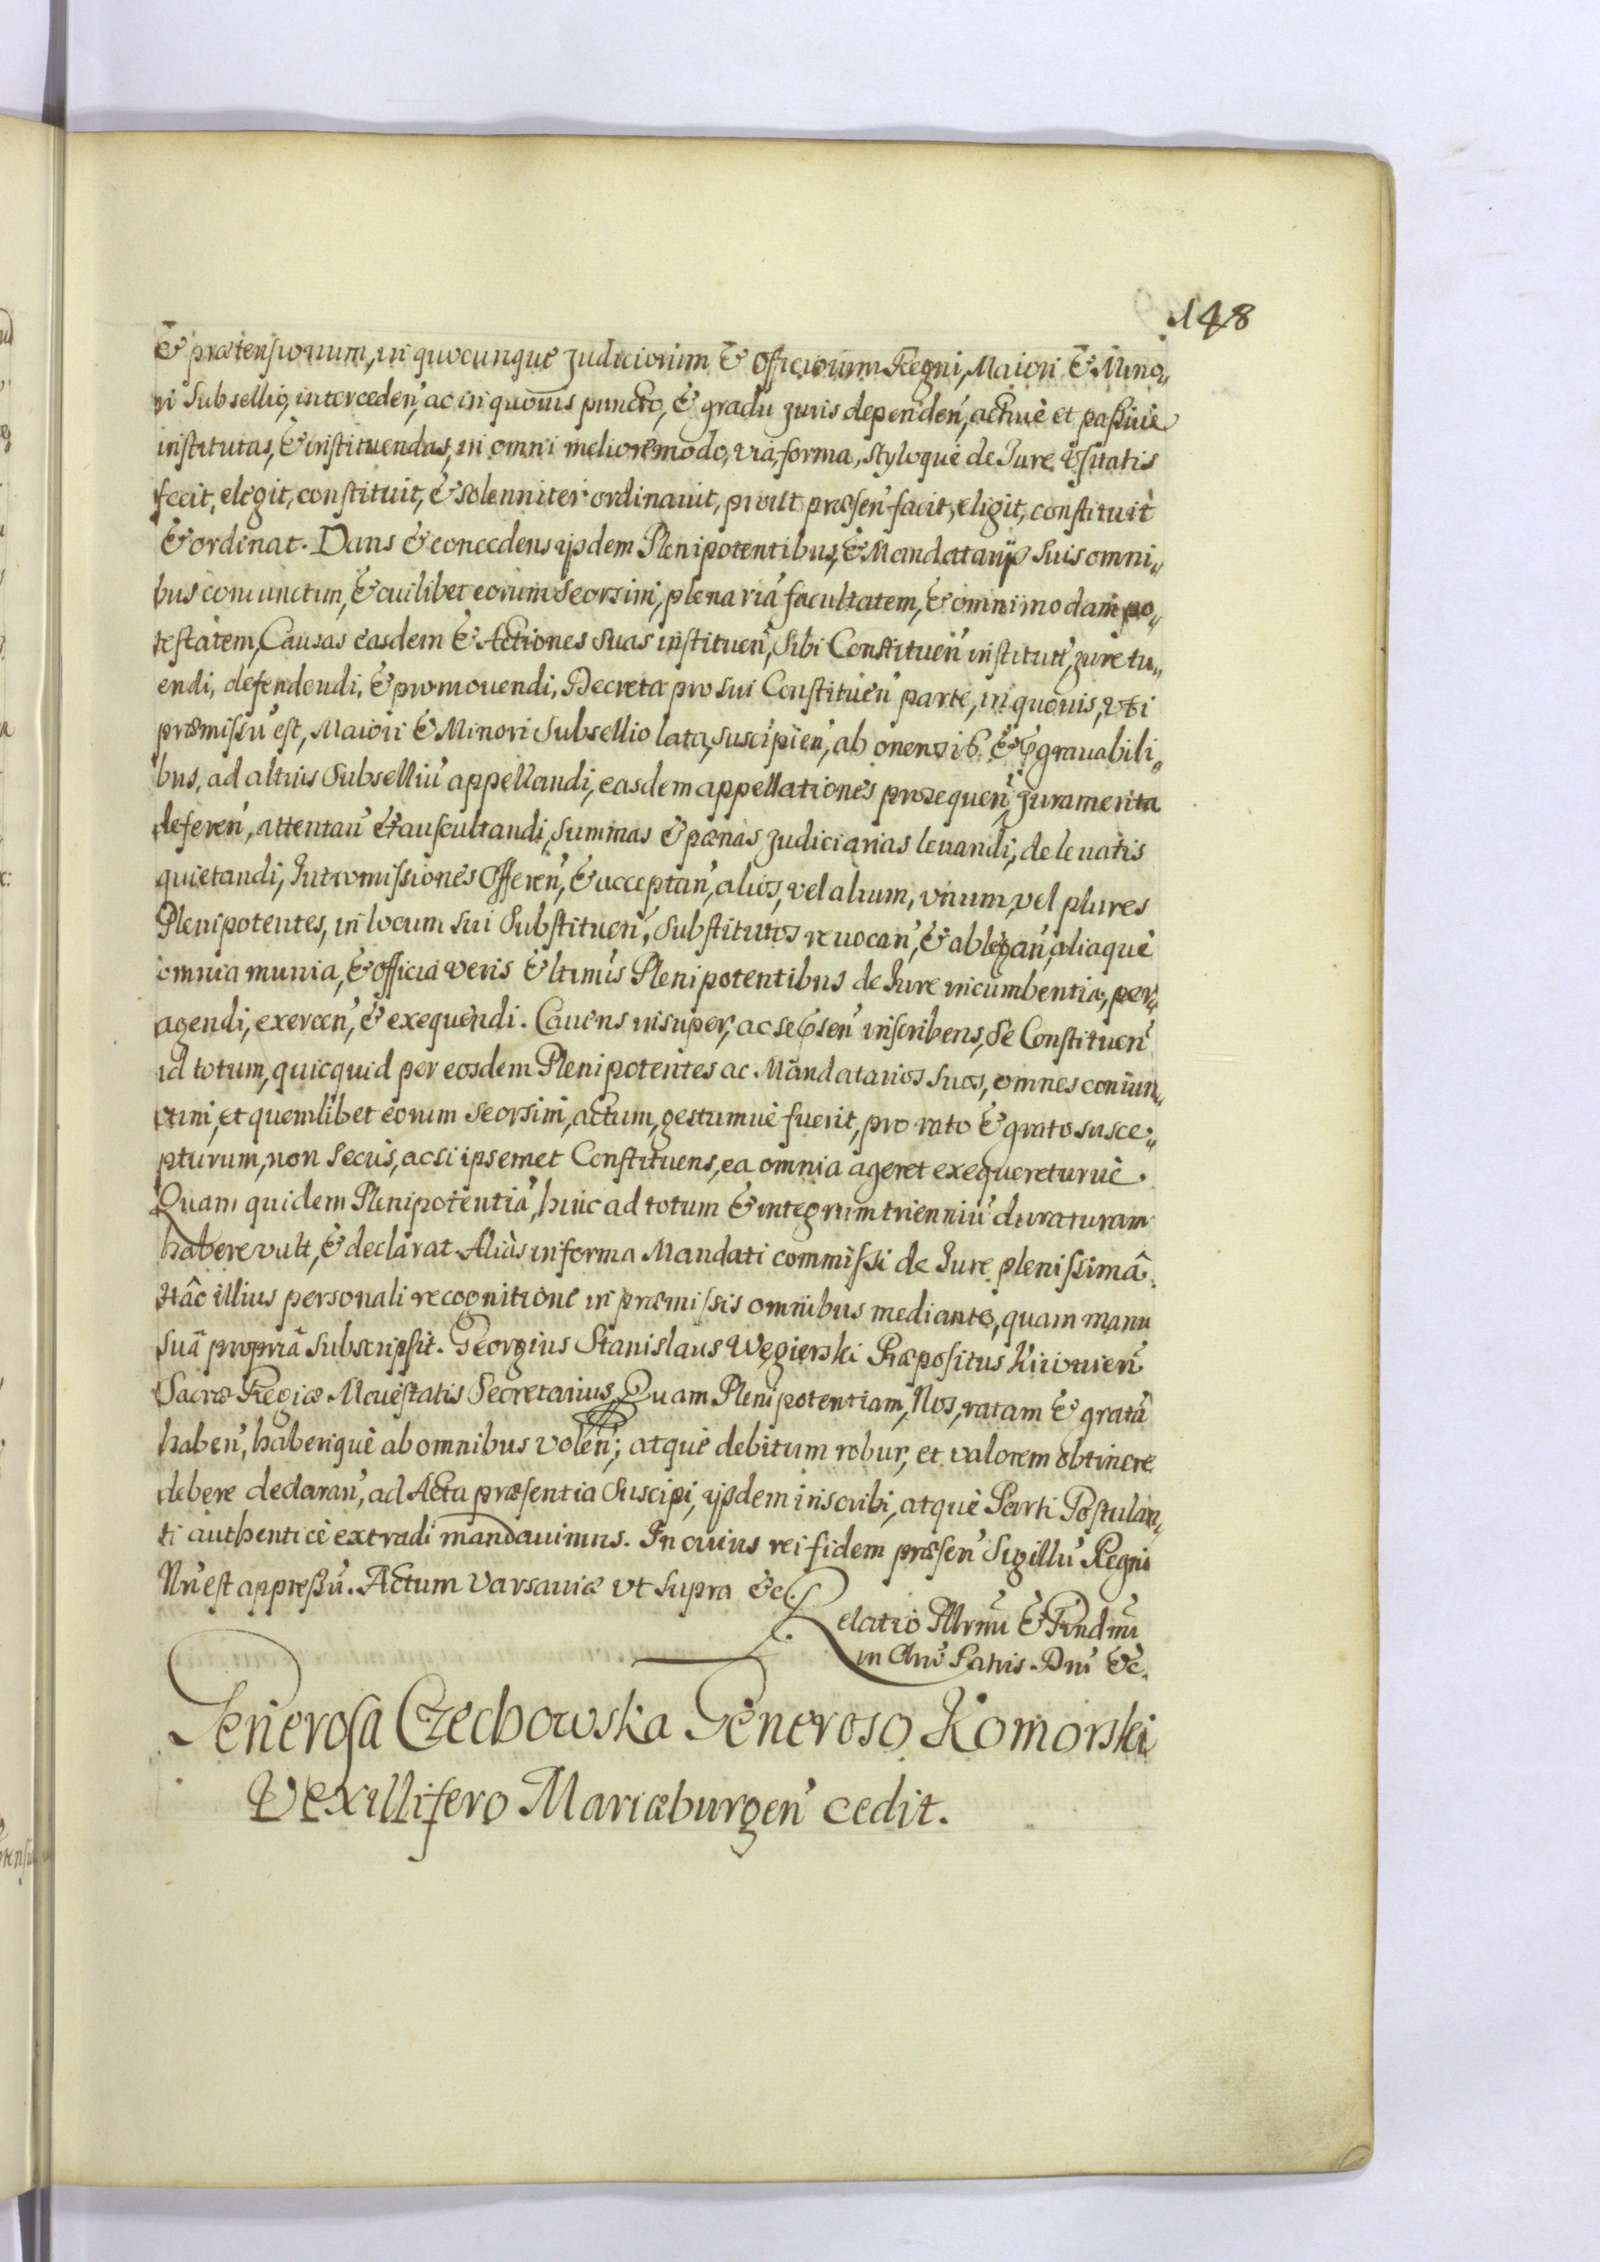 148
& prætensionum, in quocunque Judiciorum & Officiorum Regni, Maiori & Mino„
ri Subsellio, interceden', ac in quovis puncto, & gradu Juris dependen', active et passive
institutas, & instituendas, in omni meliore modo, via, forma, styloque de Jure usitatis
fecit, elegit, constituit, & solenniter ordinavit, prout præsen' facit, eligit, constituit
& ordinat. Dans & concedens ijsdem Plenipotentibus, & Mandatarijs suis omni„
bus coniunctim, & cuilibet eorum seorsim, plenariā facultatem, & omnimodam po„
testatem, Causas easdem & Actiones suas instituen', sibi Constituen' institut', jure tu„
endi, defendendi, & promovendi, Decreta pro sui Constituen' parte, in quovis, uti
præmissū est, Maiori & Minori Subsellio lata, suscipien', ab onerosis & gravabili„
bus, ad altius Subselliū appellandi, easdem appellationes prosequen', Juramenta
deferen', attentan' & auscultandi, summas & pœnas Judiciarias levandi, de levatis
quietandi, Intromissiones Offeren', & acceptan', alios, vel alium, unum, vel plures
Plenipotentes, in locum sui Substituen', Substitutos revocan', & ablegan', aliaque
omnia munia, & officia veris & ltimis Plenipotentibus de Jure incumbentia, per„
agendi, exercen', & exequendi. Cavens insuper, ac se præsen' inscribens, se Constituen'
id totum, quicquid per eosdem Plenipotentes ac Mandatarios suos, omnes coniun„
ctim, et quemlibet eorum seorsim, actum, gestumve fuerit, pro rato & grato susce„
pturum, non secus, ac si ipsemet Constituens, ea omnia ageret exequereturve.
Quam quidem Plenipotentiā, hinc ad totum & integrum trienniū duraturam
habere vult, & declarat. Aliàs in forma Mandati commissi de Jure plenissimâ.
Hâc illius personali recognitione in præmissis omnibus mediante, quam manu
suâ propriâ subscripsit. Georgius Stanislaus Węgierski Præpositus Kiiovien'
Sacræ Regiæ Maiestatis Secretarius, Quam Plenipotentiam, Nos, ratam & gratâ
haben', haberique ab omnibus volen'; atque debitum robur, et valorem obtinere
debere declaran', ad Acta præsentia suscipi, ijsdem inscribi, atque Parti Postulan„
ti authenticè extradi mandavimus. In cuius rei fidem præsen' Sigillū Regni
Nrū est appressū. Actum Varsaviæ ut supra &c.
Relatio Illrmi & Rndmi
in Chrō Patris Dni &c.
Generosa Czechowska Generoso Komorski
Vexillifero Mariæburgen' cedit.